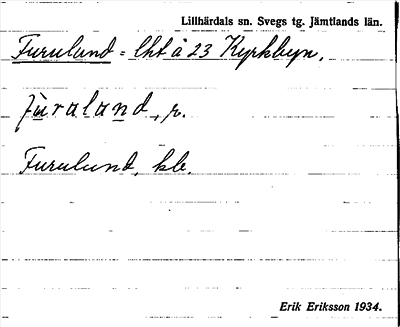 Lillhärdals sn. Svegs tg. Jämtlands län.
Furulund = lht å 23 Kyrkbyn.
fùraland, r.
Furulund, kb.
Erik Eriksson 1934.